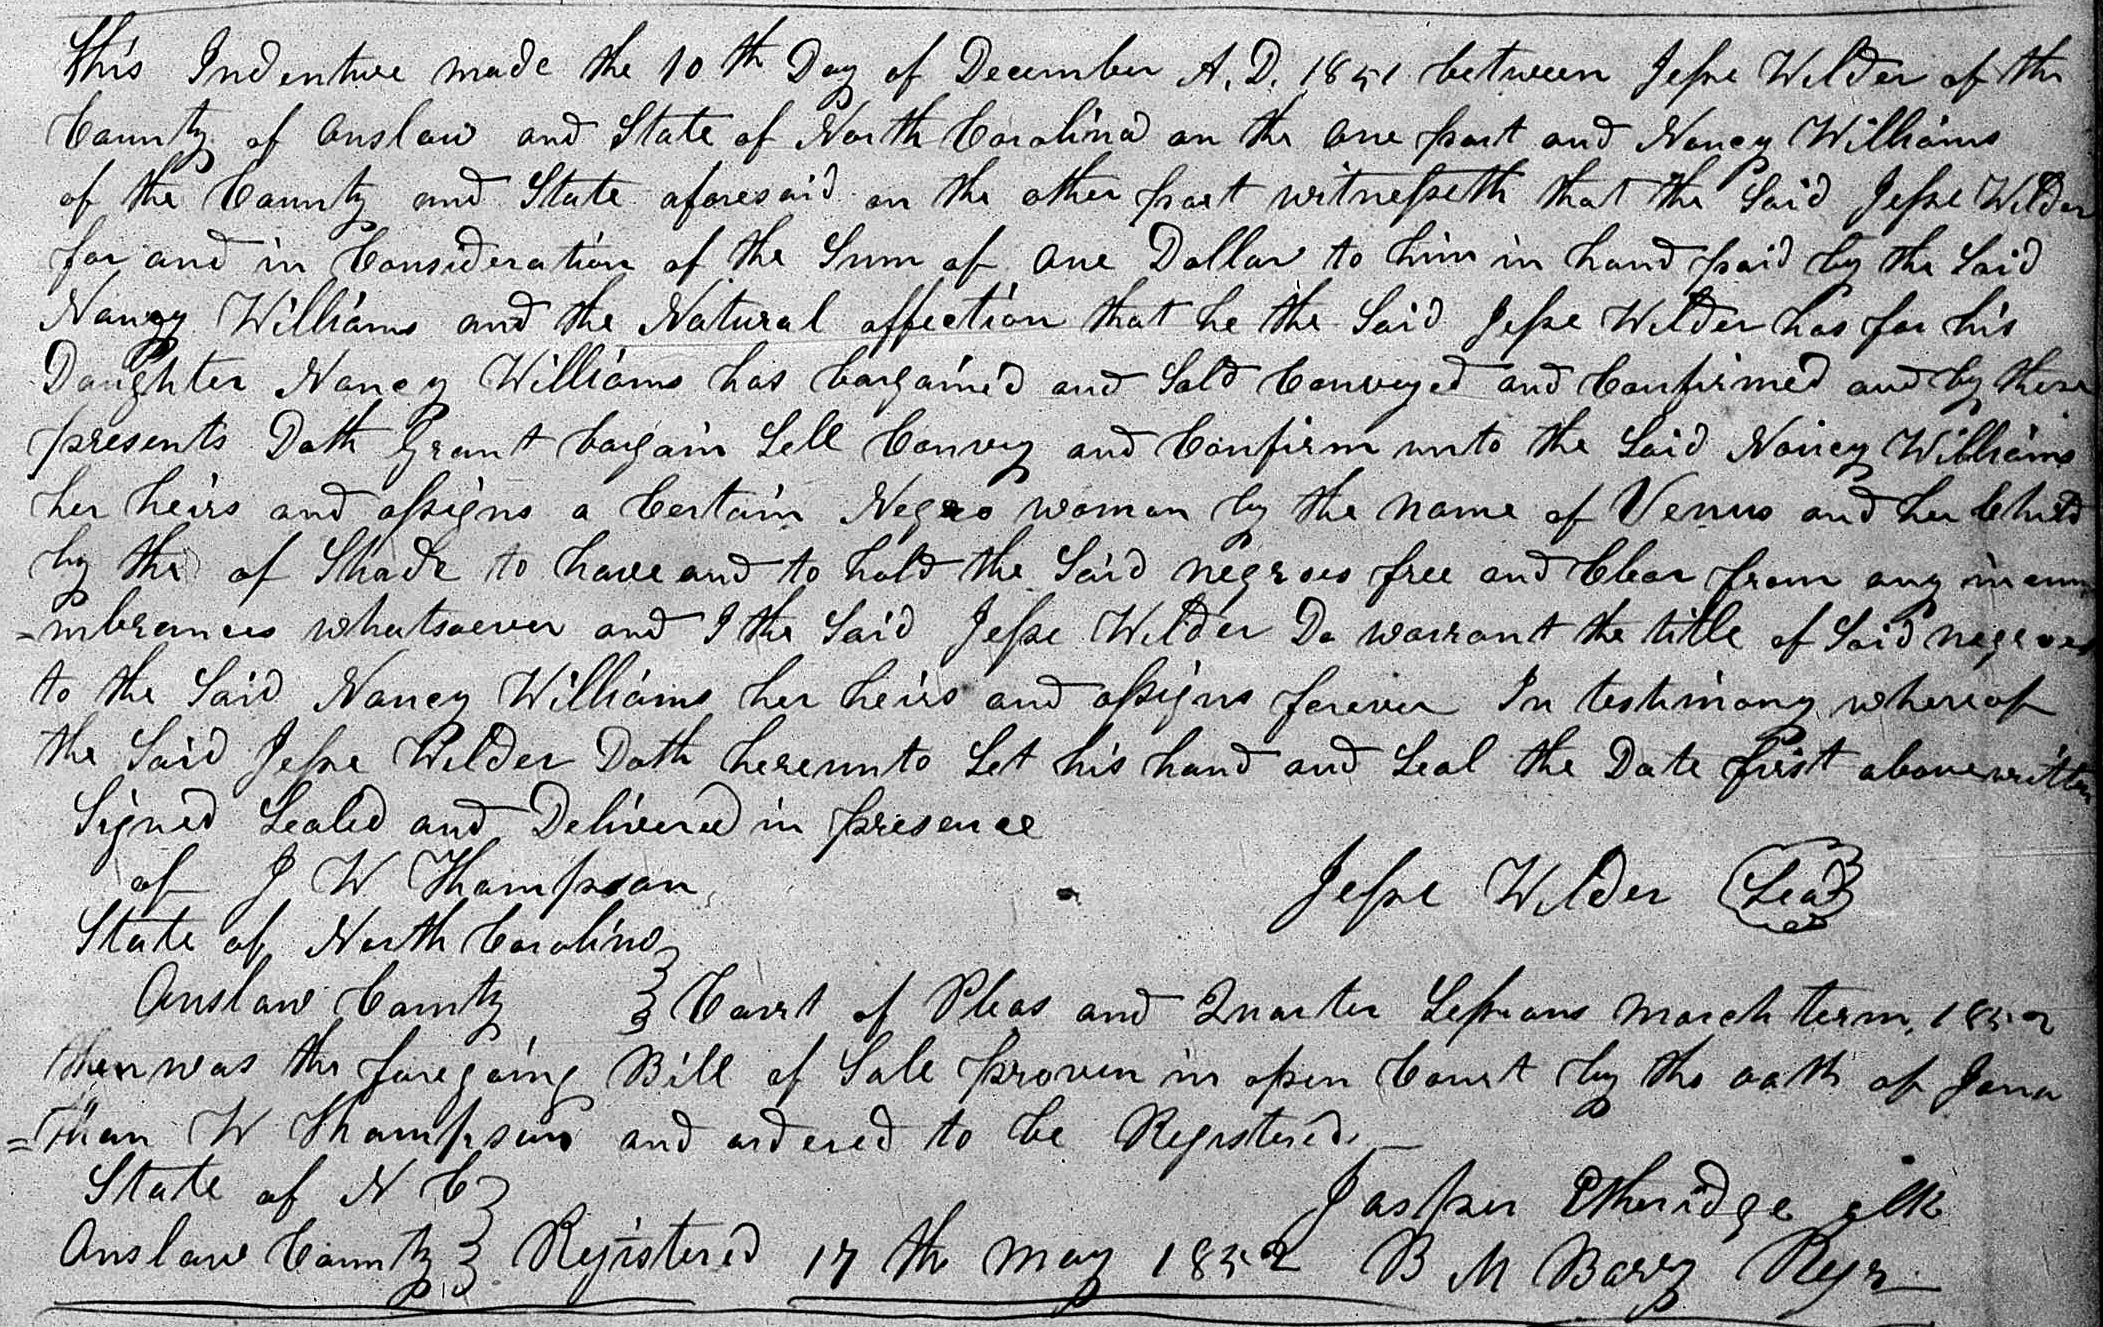 This Indenture made the 10th Day of December A.D. 1851 between Jesse Wilder of the
County of Onslow and State of North Carolina on the one part and Nancy Williams
of the County and State aforesaid on the other part witnesseth that the Said Jesse Wilder
for and in Consideration of the Sum of one Dollar to him in hand paid by the Said
Nancy Williams and the Natural affection that he the Said Jesse Wilder has for his
Daughter Nancy Williams has bargained and Sold Conveyed and Confirmed and by these
presents Doth Grant bargain Sell Convey and Confirm unto the Said Nancy Williams
her heirs and assigns a Certain Negro woman by the name of Venus and her Child
by the of Shade to have and to hold the Said negroes free and Clear from any incum
=mbrances whatsoever and I the Said Jesse Wilder Do warrant the title of Said negroes
to the Said Nancy Williams her heirs and assigns forever In testimony whereof
the Said Jesse Wilder Doth hereunto Set his hand and Seal the Date first above written
Signed Sealed and Delivered in presence
of J W Thompson Jesse Wilder Seal
State of North Carolina
Onslow County Court of Pleas and Quarter Sessions March term, 1852
then was the foregoing Bill of Sale proven in open Court by the oath of Jona
=than W Thompson and ordered to be Registered.
State of N C Jasper Etheridge clk
Onslow County Registered 17th may 1852 B M Barry Regr